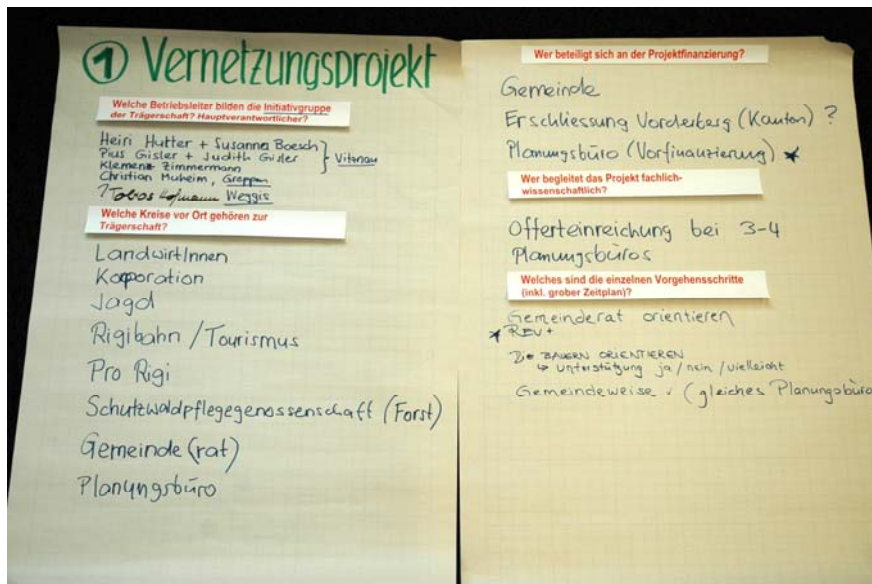 ① Vernetzungsprojekt
Welche Betriebsleiter bilden die Initiativgruppe
der Trägerschaft? Hauptverantwortlicher?
Heiri Hutter + Susanna Boesch
Pius Gisler + Judith Gisler } Vitznau
Klemenz Zimmermann
Christian Muheim, Greppen
? Hofmann Weggis
Welche Kreise vor Ort gehören zur
Trägerschaft?
LandwirtInnen
Korporation
Jagd
Rigibahn / Tourismus
Pro Rigi
Schutzwaldpflegegenossenschaft (Forst)
Gemeinde(rat)
Planungsbüro
Wer beteiligt sich an der Projektfinanzierung?
Gemeinde
Erschliessung Vorderberg (Kanton) ?
Planungsbüro (Vorfinanzierung) *
Wer begleitet das Projekt fachlich-
wissenschaftlich?
Offerteinreichung bei 3-4
Planungsbüros
Welches sind die einzelnen Vorgehensschritte
(inkl. grober Zeitplan)?
Gemeinderat orientieren
* REV +
BAUERN ORIENTIEREN
↳ Unterstützung ja / nein / vielleicht
Gemeindeweise (gleiches Planungsbüro